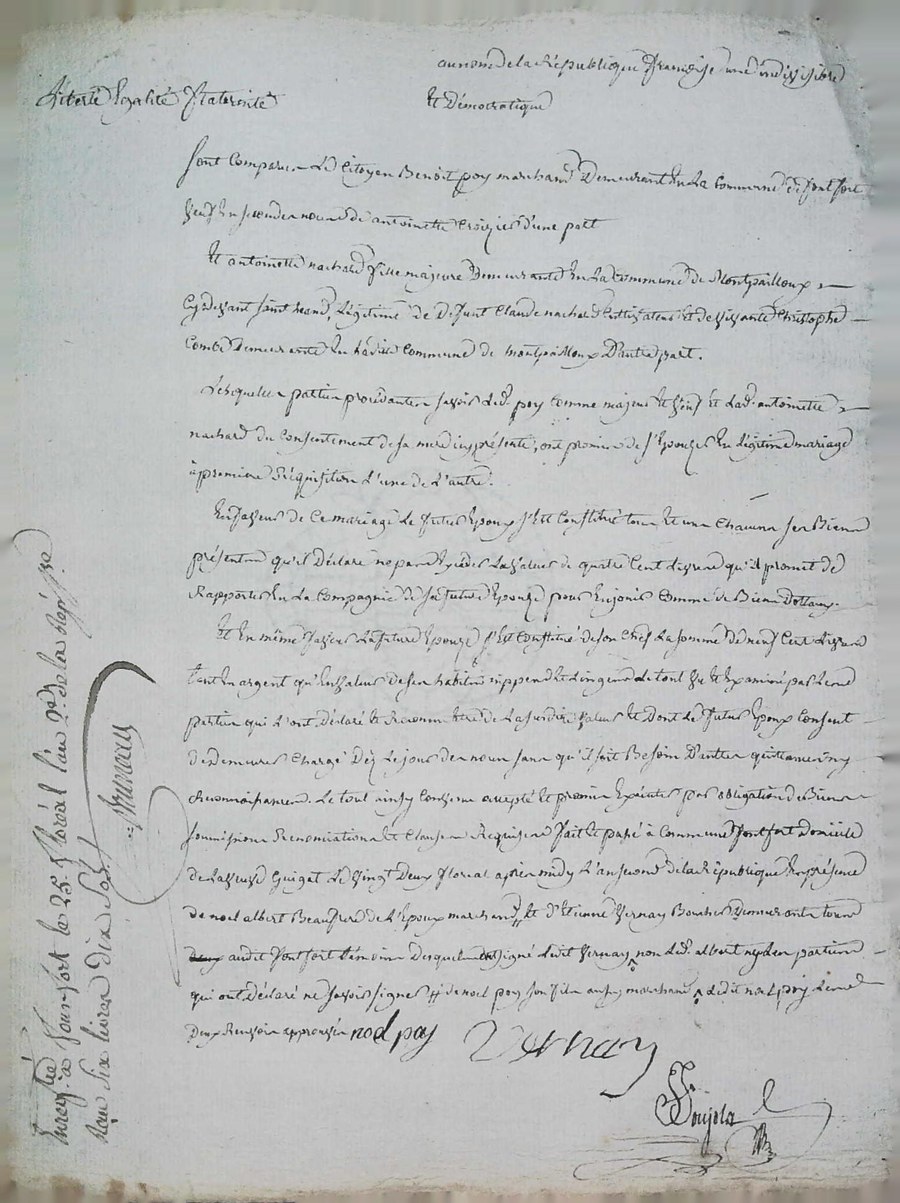 Liberté Egalité Fraternité
au nom de la République française une indivisible
Et Démocratique
sont comparus Le Citoyen Benoit poy marchand Demeurant En La Commune de fontfort
veuf En seconde noces de antoinette Croizier d'une part
Et antoinette nachard fille majeure Demeurante En La Commune de Montpailloux
Cy devant saint heand, Légitime de Defunt Claude nachard Cultivateur Et de vivante Christophe
Combe Demeurante En ladite Commune de montpailloux D'autre part.
Lesquelles parties procédantes savoir Led. poy Comme majeur Et veuf Et Lad. antoinette
nachard du Consentement de sa mere icy présente, ont promis de s'Epouser En Légitime mariage
à premiere Réquisition L'une de L'autre.
En faveur de Ce mariage Le futur Epoux s'Est Constitué tous Et uns Chacuns ses Biens
présents qu'il Déclare ne pas Excéder La valeur de quatre Cent Livres qu'il promet de
Rapporter En La Compagnie de sa future Epouse pour En jouir Comme de Biens Dottaux.
Et En même faveur La future Epouse s'Est Constitué de son Chef La somme de neuf Cent Livres
tant En argent qu'En valeur de ses habits nippes Et Linges Le tout vu Et Examiné par Les
parties qui L'ont Déclaré Et Reconnu Etre de La susdite valeur Et Dont Le futur Epoux Consent
de Demeurer Chargé Dès Le jour des noces sans qu'il soit Besoin D'autre quittance ny
Reconnoissance. Le tout ainsy Convenu accepté Et promis Exécuter par obligation de Biens
soumissions Renonciations Et Clauses Requises fait Et passé à Commune fontfort Domicile
de La veuve Guigat Le vingt Deux floreal après midy L'an second de la République En présence
de noel albert Beaufrere de L'Epoux marchand Et d'Etienne Vernay Boucher Demeurants tous
audit fontfort témoins Desquels a signé Ledit Vernay non Led. albert ny Les parties
qui ont Déclaré ne savoir signer # de noel poy son fils aussy marchand Ledit noel poy
Deux Renvois approuvés noel poy Vernay
Poujola
Enregistré à Fontfort le 25. floréal l'an 2e. de la Rép.
Reçu six livres dix sols